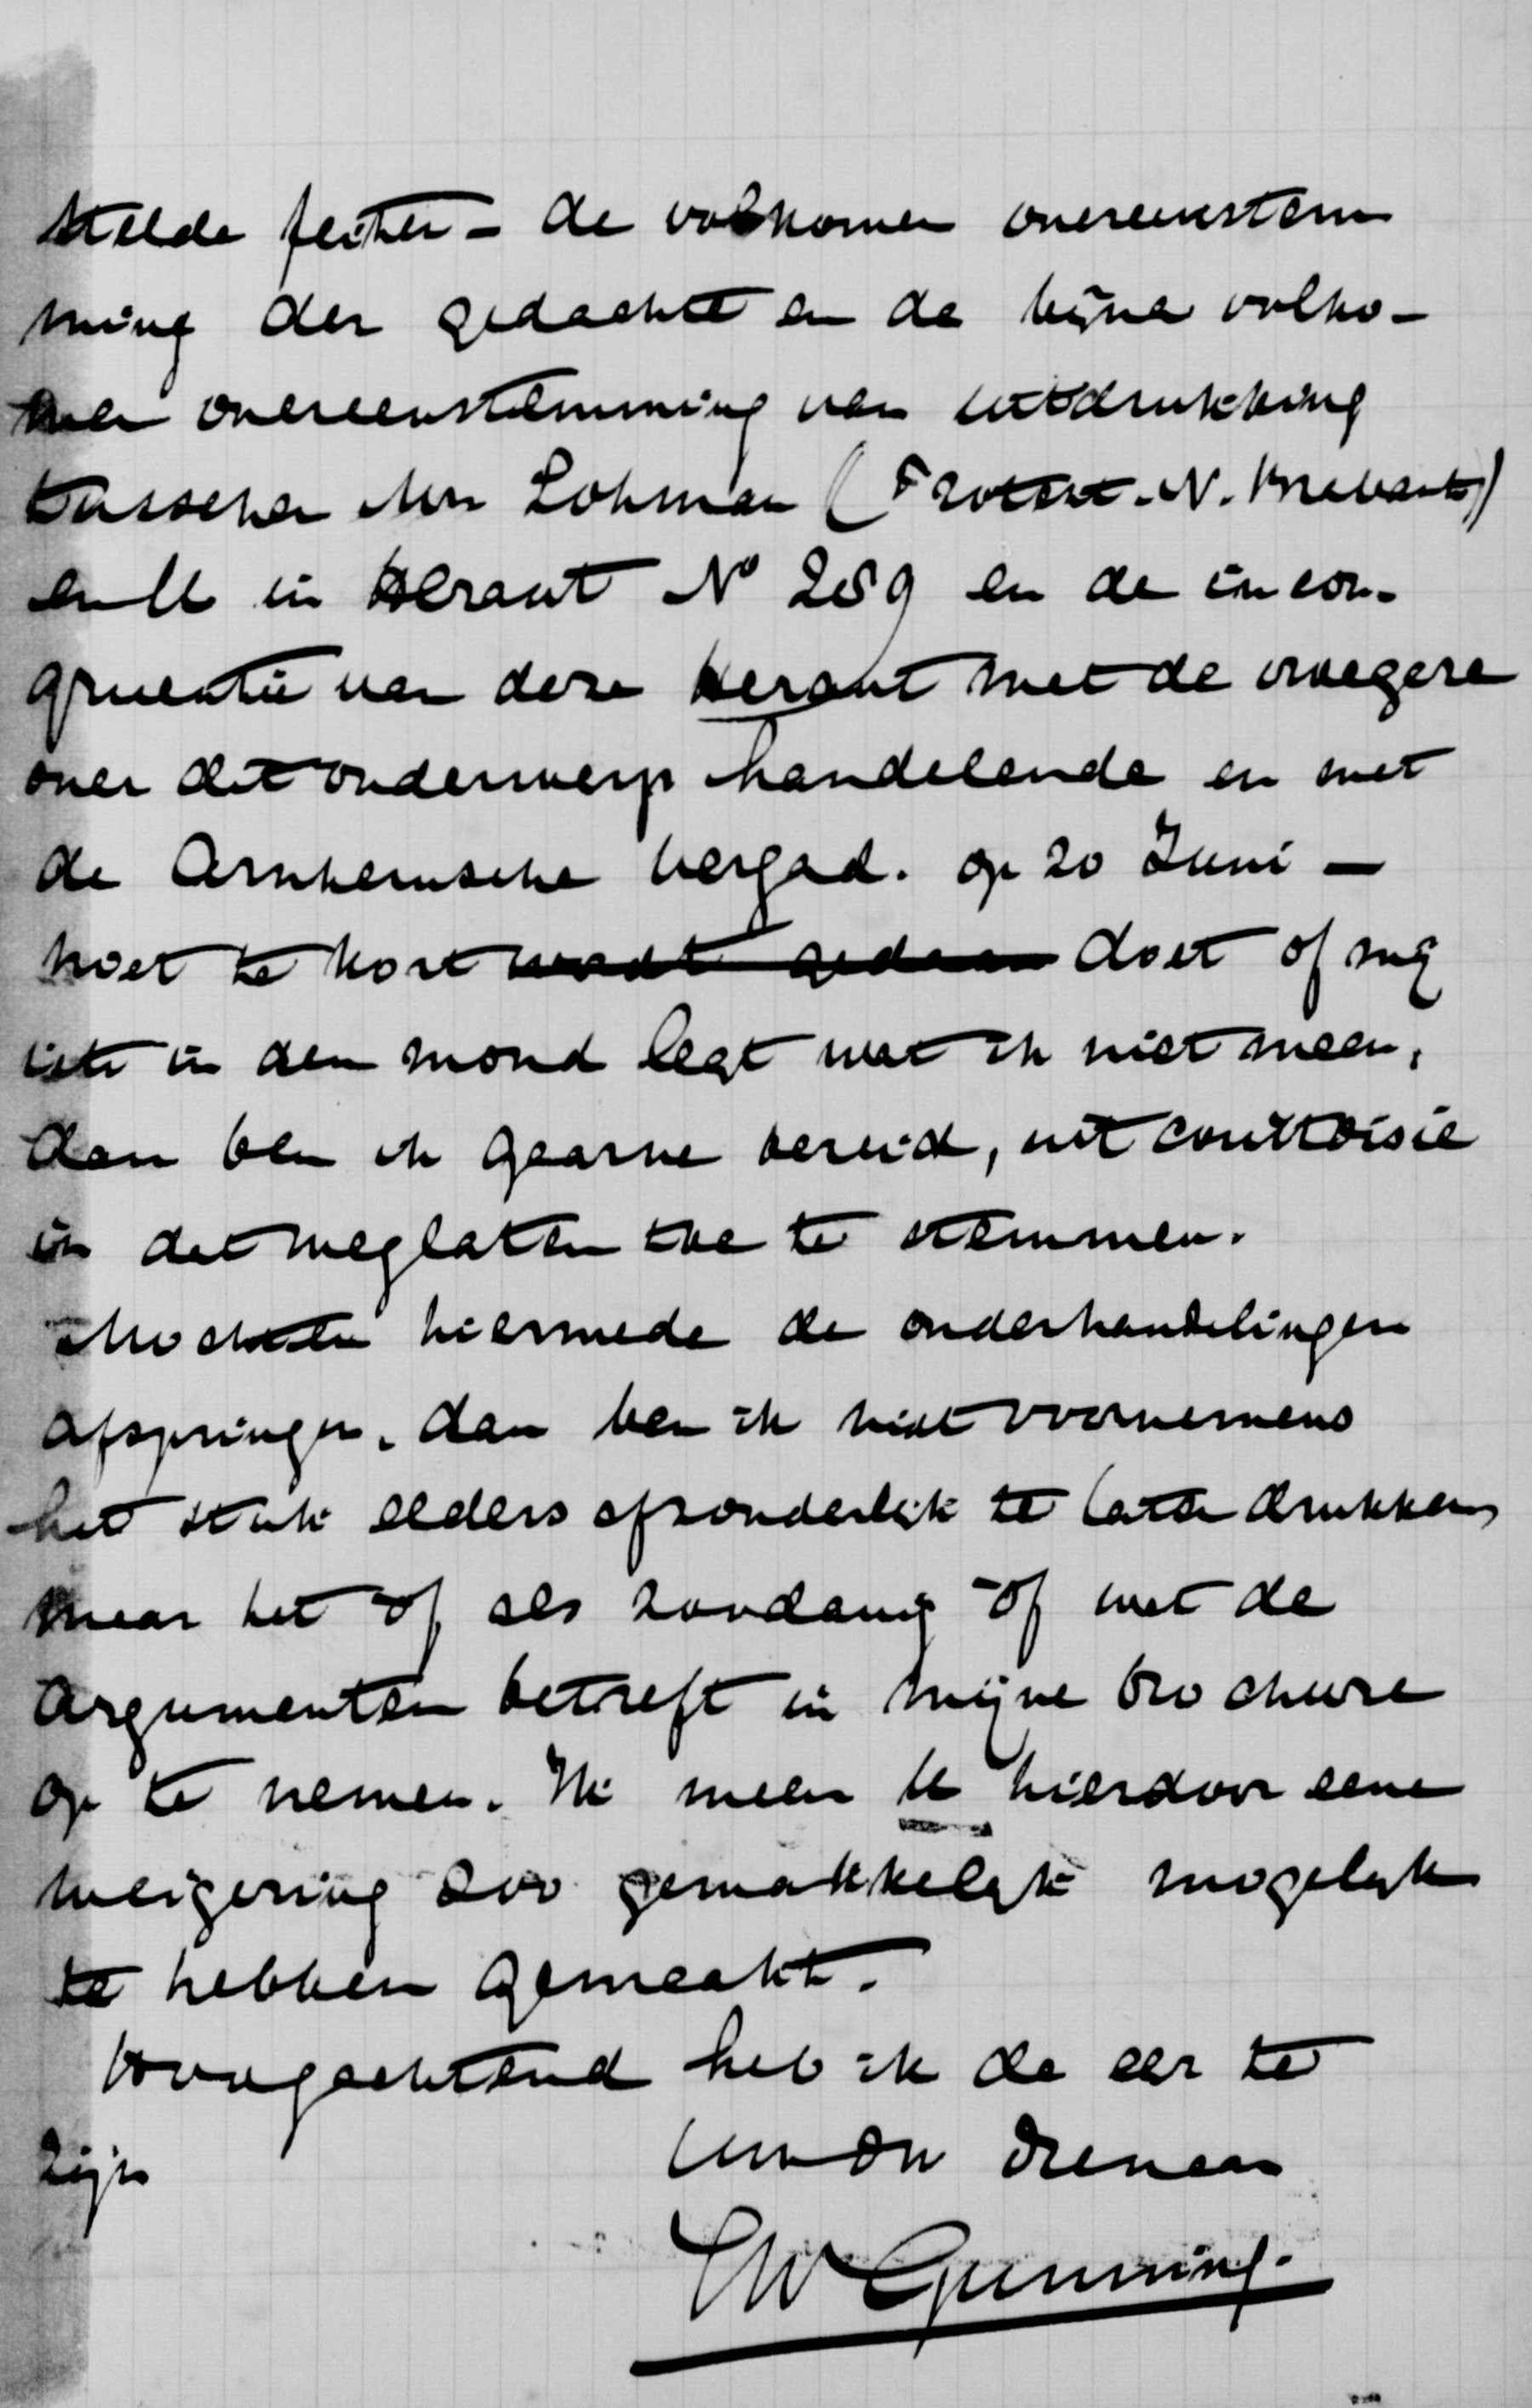 stelde feiten - de volkomen overeenstem
ming der gedachte en de bijna volko-
men overeenstemming van uitdrukking
tusschen Mr Lohman (Protest. N. Brabant)
en U in Heraut No 289 en de incon-
gruentie van deze Heraut met de vroegere
over dit onderwerp handelende en met
de Arnhemsche vergad. op 20 Juni -
moet te kort wordt gedaan doet of mij
iets in den mond legt wat ik niet meen,
dan ben ik gaarne bereid, uit courtoisie
in dat weglaten toe te stemmen.
Mochten hiermede de onderhandelingen
afspringen, dan ben ik niet voornemens
het stuk elders afzonderlijk te laten drukken,
maar het òf als zoodanig òf wat de
argumenten betreft in mijne brochure
op te nemen. Ik meen U hierdoor eene
weigering zoo gemakkelijk mogelijk
te hebben gemaakt.
Hoogachtend heb ik de eer te
zijn Uw dw dienaar
JW Gunning.